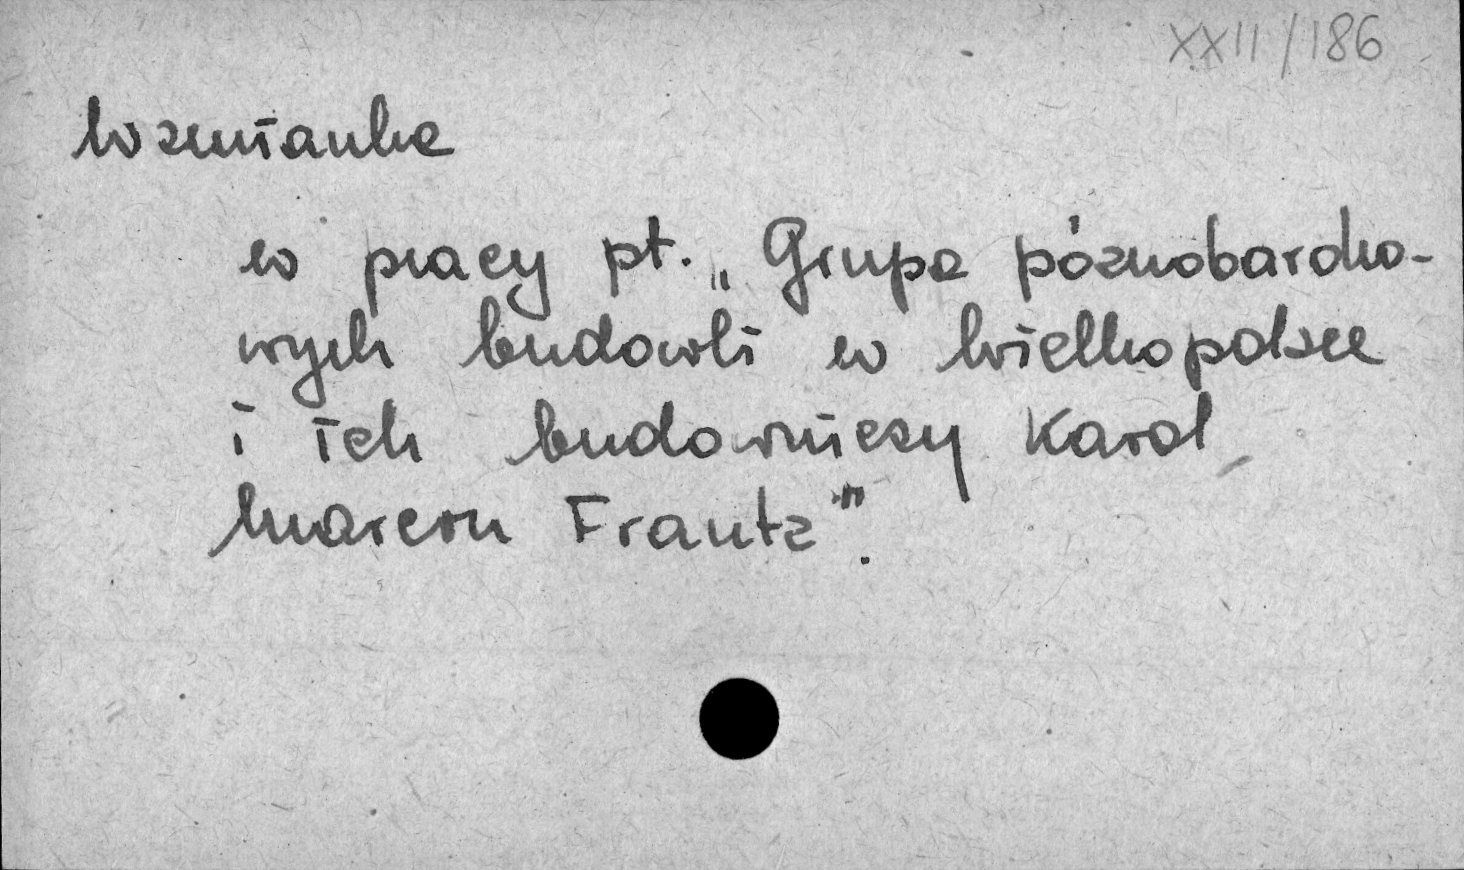 XXII/186
Wzmianka
w pracy pt. „Grupa póznobardko-
wych budowli w Wielkopolsce
i ich budowniczy Karol
Marcin Frantz”.